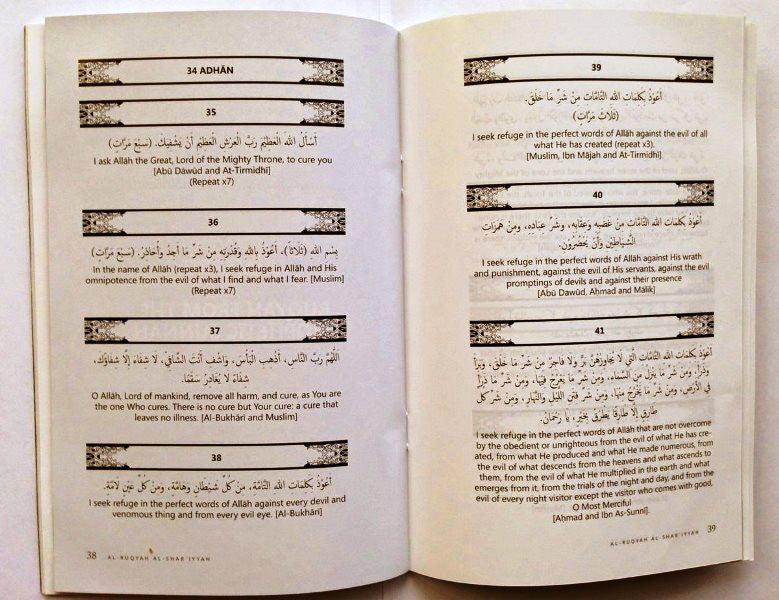 34 ADHĀN
35
أَسْأَلُ اللهَ الْعَظِيمَ رَبَّ الْعَرْشِ الْعَظِيمِ أَنْ يَشْفِيَكَ. (سَبْعَ مَرَّاتٍ)
I ask Allāh the Great, Lord of the Mighty Throne, to cure you
[Abū Dāwūd and At-Tirmidhi]
(Repeat x7)
36
بِسْمِ اللهِ (ثَلَاثاً)، أَعُوْذُ بِاللهِ وَقُدْرَتِهِ مِنْ شَرِّ مَا أَجِدُ وَأُحَاذِرُ. (سَبْعَ مَرَّاتٍ)
In the name of Allāh (repeat x3), I seek refuge in Allāh and His
omnipotence from the evil of what I find and what I fear. [Muslim]
(Repeat x7)
37
اللَّهُمَّ رَبَّ النَّاسِ، أَذْهِبِ الْبَأْسَ، وَاشْفِ أَنْتَ الشَّافِي، لَا شِفَاءَ إِلَّا شِفَاؤُكَ،
شِفَاءً لَا يُغَادِرُ سَقَمًا.
O Allāh, Lord of mankind, remove all harm, and cure, as You are
the One Who cures. There is no cure but Your cure: a cure that
leaves no illness. [Al-Bukhāri and Muslim]
38
أَعُوْذُ بِكَلِمَاتِ اللهِ التَّامَّةِ، مِنْ كُلِّ شَيْطَانٍ وَهَامَّةٍ، وَمِنْ كُلِّ عَيْنٍ لَامَّةٍ.
I seek refuge in the perfect words of Allāh against every devil and
venomous thing and from every evil eye. [Al-Bukhāri]
38 AL-RUQYAH AL-SHAR'IYYAH
39
أَعُوْذُ بِكَلِمَاتِ اللهِ التَّامَّاتِ مِنْ شَرِّ مَا خَلَقَ.
(ثَلَاثَ مَرَّاتٍ)
I seek refuge in the perfect words of Allāh against the evil of all
what He has created (repeat x3).
[Muslim, Ibn Mājah and At-Tirmidhi]
40
أَعُوْذُ بِكَلِمَاتِ اللهِ التَّامَّاتِ مِنْ غَضَبِهِ وَعِقَابِهِ، وَشَرِّ عِبَادِهِ، وَمِنْ هَمَزَاتِ
الشَّيَاطِيْنِ وَأَنْ يَحْضُرُونَ.
I seek refuge in the perfect words of Allāh against His wrath
and punishment, against the evil of His servants, against the evil
promptings of devils and against their presence
[Abū Dawūd, Aḥmad and Mālik]
41
أَعُوْذُ بِكَلِمَاتِ اللهِ التَّامَّاتِ الَّتِي لَا يُجَاوِزُهُنَّ بَرٌّ وَلَا فَاجِرٌ مِنْ شَرِّ مَا خَلَقَ، وَبَرَأَ
وَذَرَأَ، وَمِنْ شَرِّ مَا يَنْزِلُ مِنَ السَّمَاءِ، وَمِنْ شَرِّ مَا يَعْرُجُ فِيْهَا، وَمِنْ شَرِّ مَا ذَرَأَ
فِي الْأَرْضِ، وَمِنْ شَرِّ مَا يَخْرُجُ مِنْهَا، وَمِنْ شَرِّ فِتَنِ اللَّيْلِ وَالنَّهَارِ، وَمِنْ شَرِّ كُلِّ
طَارِقٍ إِلَّا طَارِقًا يَطْرُقُ بِخَيْرٍ، يَا رَحْمَانُ.
I seek refuge in the perfect words of Allāh that are not overcome
by the obedient or unrighteous from the evil of what He has cre-
ated, from what He produced and what He made numerous, from
the evil of what descends from the heavens and what ascends to
them, from the evil of what He multiplied in the earth and what
emerges from it, from the trials of the night and day, and from the
evil of every night visitor except the visitor who comes with good,
O Most Merciful
[Aḥmad and Ibn As-Sunnī].
AL-RUQYAH AL-SHAR'IYYAH 39